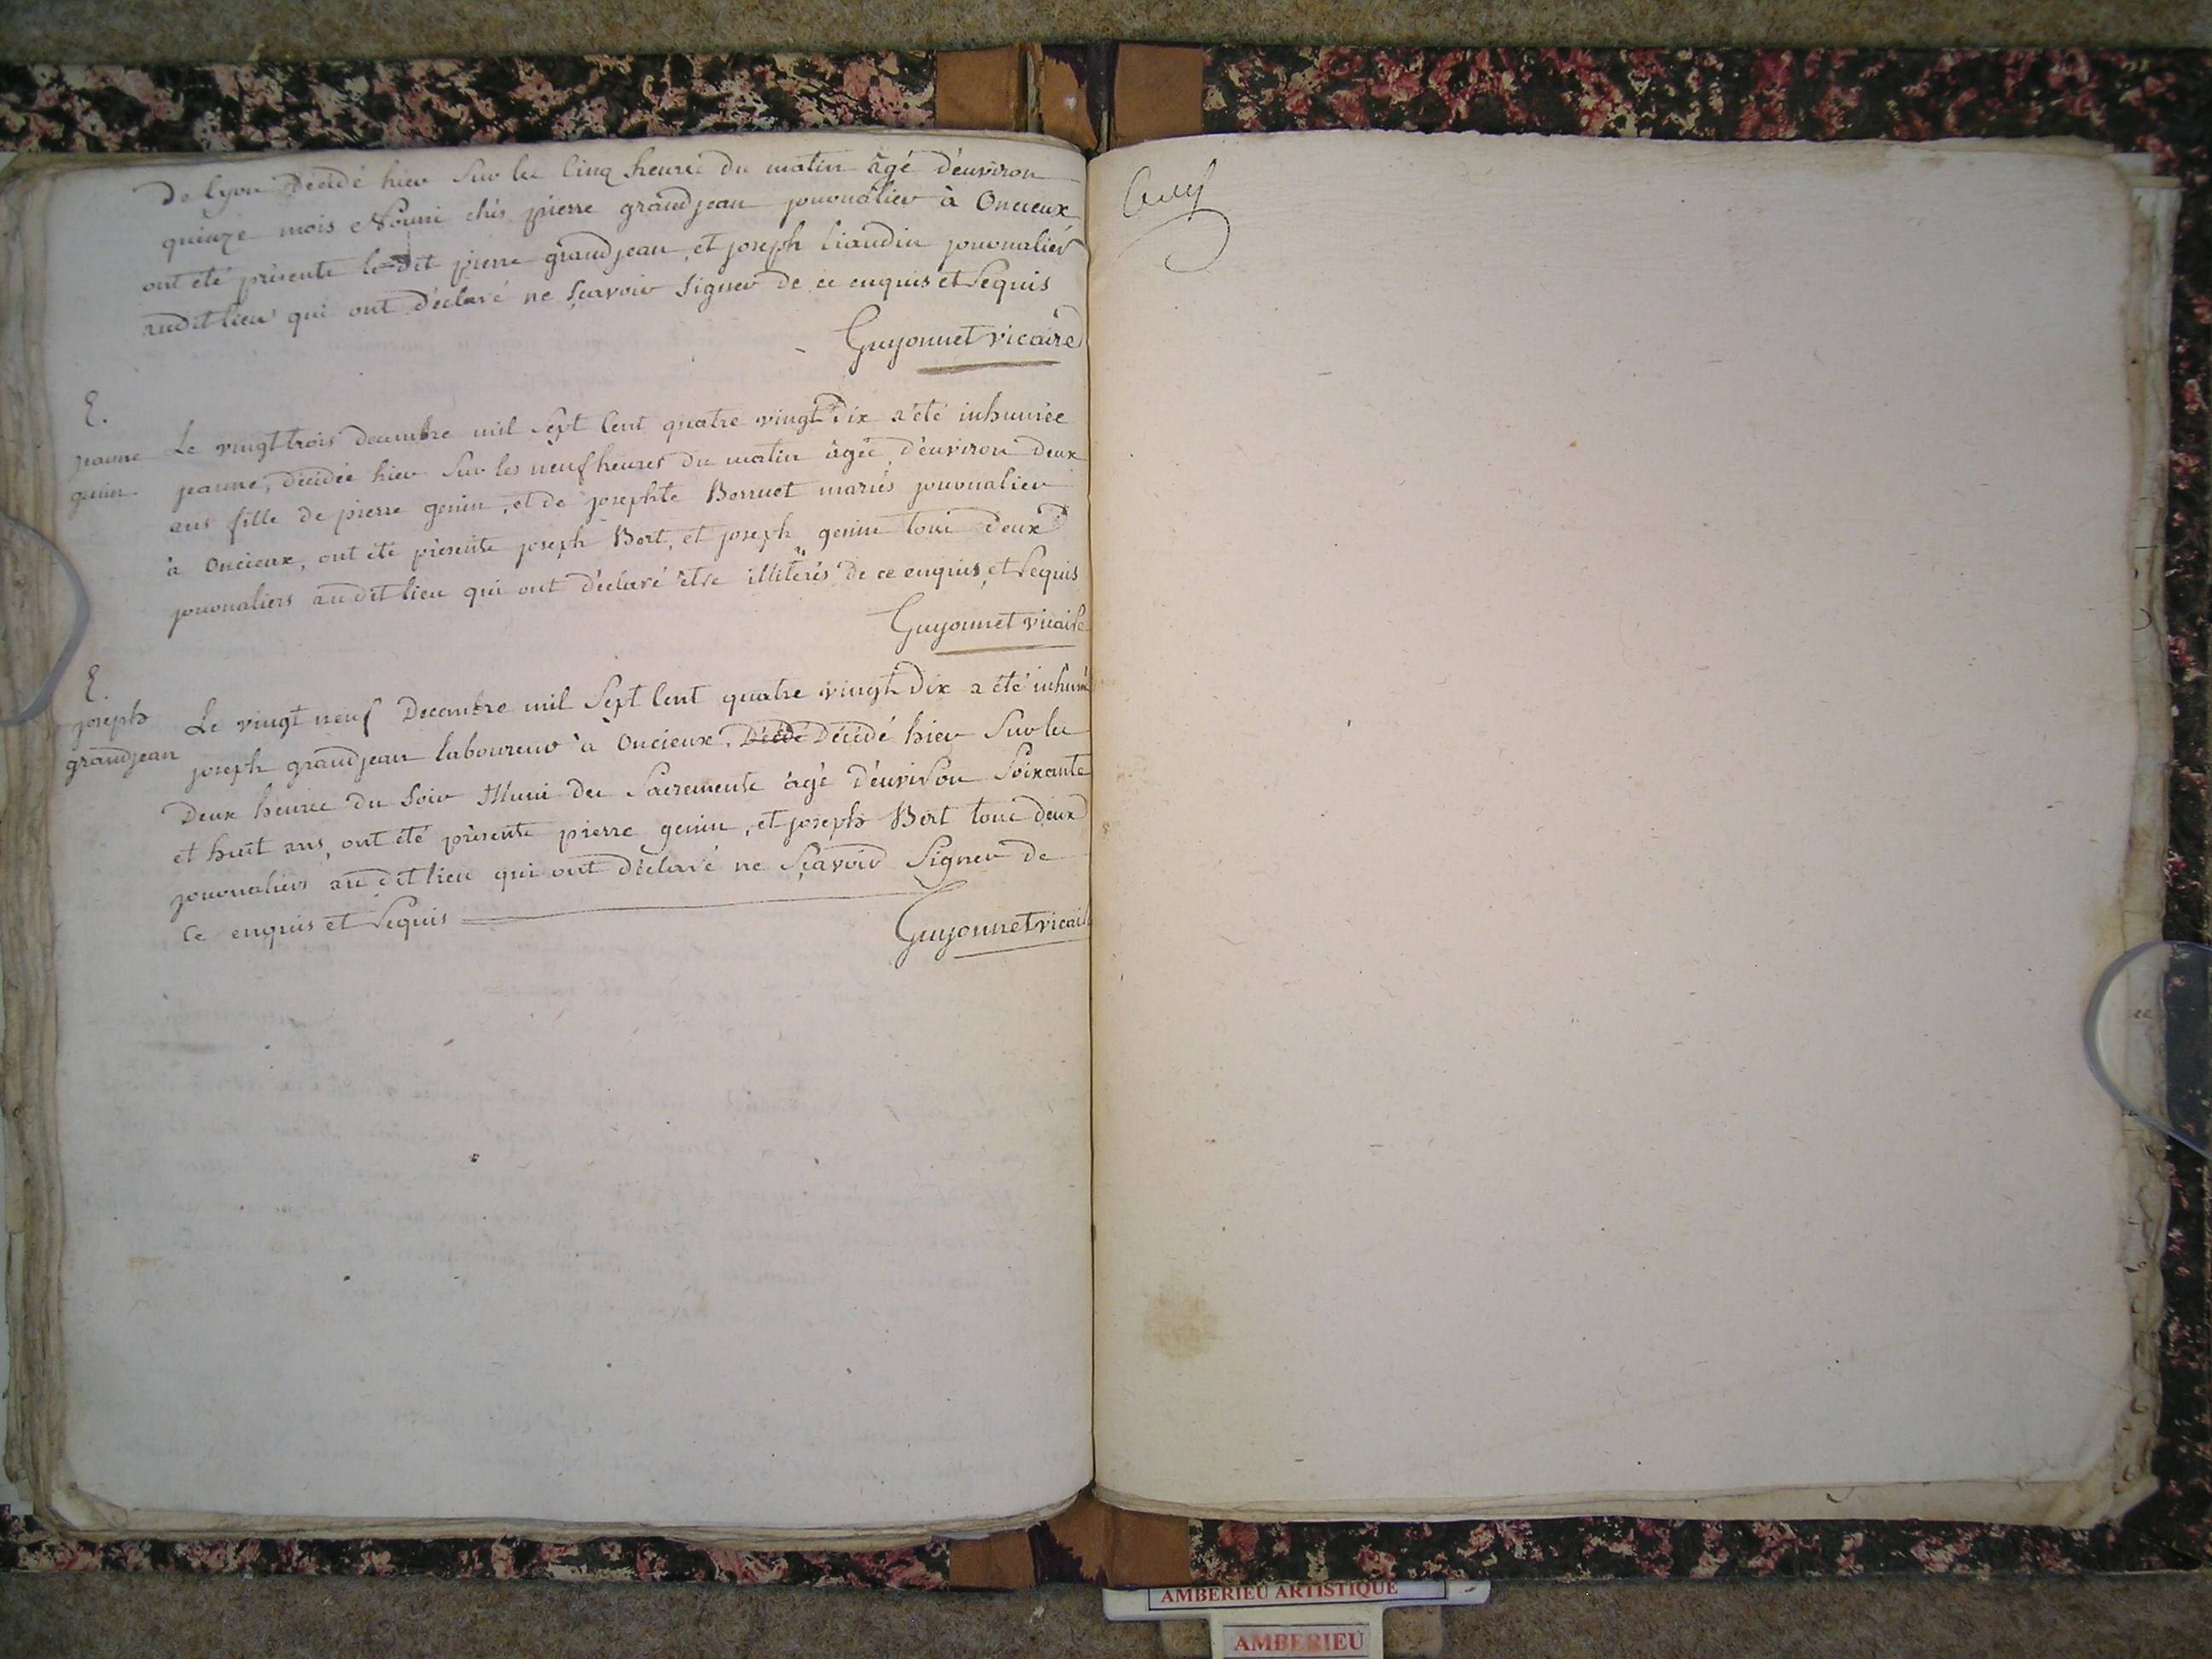 De lyon Décédé hier Sur les Cinq heures du matin âgé d'environ
quinze mois Nourri chés pierre grandjean journalier à Oncieux
ont été présents le dit pierre grandjean, et joseph liaudin journalier
audit lieu qui ont déclaré ne sçavoir signer de ce enquis et Requis
Guyonnet vicaire
E.
jeanne
genin
Le vingt trois decembre mil Sept Cent quatre vingt Dix a été inhumée
jeanne, décédée hier Sur les neuf heures du matin âgée d'environ deux
ans fille de pierre genin, et de josephte Borruet mariés journalier
à Oncieux, ont été présents joseph Bert, et joseph genin tous deux
journaliers audit lieu qui ont déclaré être illitérés de ce enquis et Requis
Guyonnet vicaire
E.
joseph
grandjean
Le vingt neuf Decembre mil Sept Cent quatre vingt Dix a été inhumé
joseph grandjean laboureur à Oncieux, Décédé hier Sur les
Deux heures du Soir Muni des Sacrements âgé d'environ Soixante
et huit ans, ont été présents pierre genin, et joseph Bert tous deux
journaliers audit lieu qui ont déclaré ne Sçavoir Signer de
Ce enquis et Requis
Guyonnet vicai
AMBERIEU ARTISTIQUE
AMBERIEU